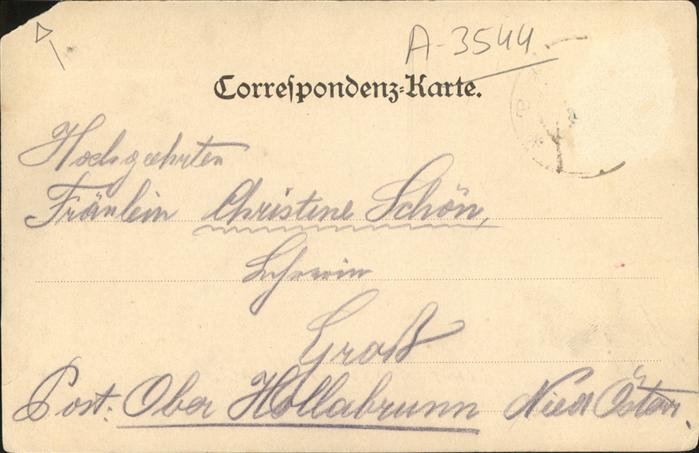 A-3544
Correspondenz-Karte.
Hochgeehrten
Fräulein Christine Schön,
Lehrerin
Groß
Post: Ober Hollabrunn Nied Österr.